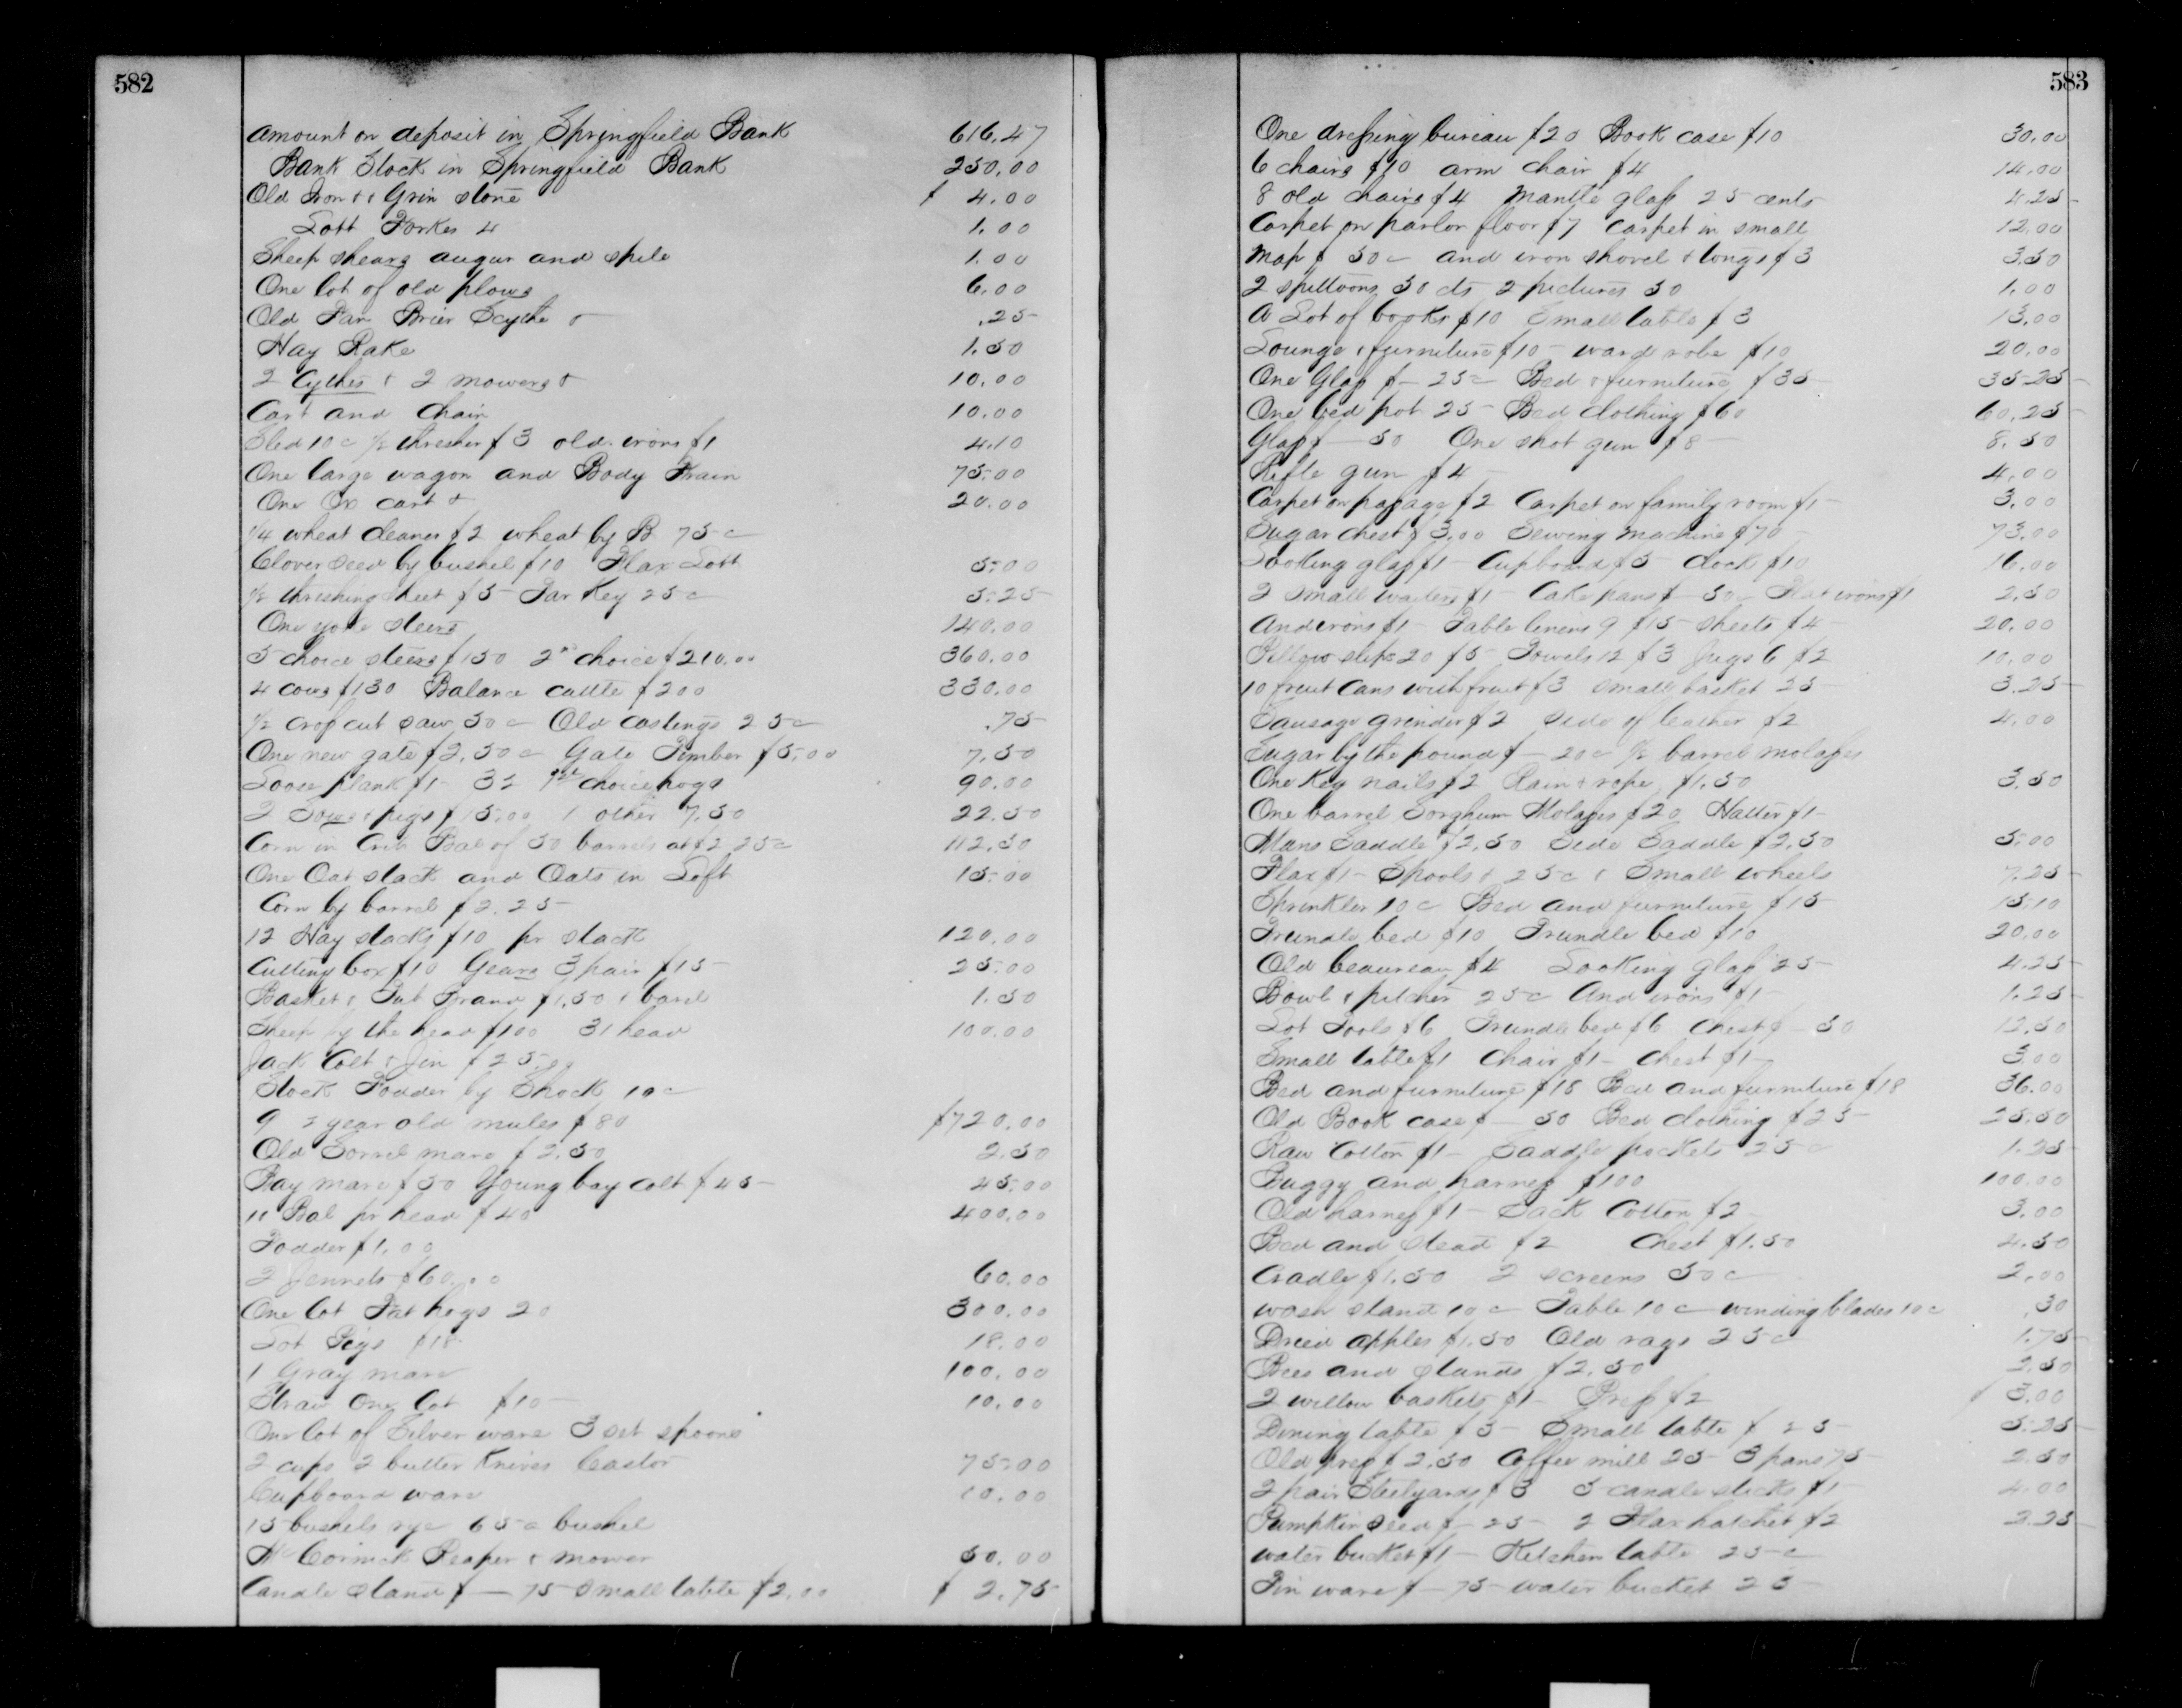 582
Amount on deposit in Springfield Bank 616.47
Bank Stock in Springfield Bank 250.00
Old Iron & Grin stone $ 4.00
Lott Forkes 4 1.00
Sheep shears augur and spile 1.00
One lot of old plows 6.00
Old Fan Brier Scythe & .25
Hay Rake 1.50
2 Cythes & 2 mowers & 10.00
Cart and Chain 10.00
Sled 10c ½ thresher $3 old irons $1 4.10
One large wagon and Body Frain 75.00
One Ox cart & 20.00
¼ wheat cleaner $2 wheat by B 75c
Clover seed by bushel $10 Flax Lott 5.00
½ threshing sheet $5 Tar Keg 25c 5.25
One yoke steers 140.00
5 choice steers $150 2nd choice $210.00 360.00
4 cows $130 Balance cattle $200 330.00
½ crop cut saw 50c Old castings 25c .75
One new gate $2.50c Gate Timber $5.00 7.50
Loose plank $1 32 1st choice hogs 90.00
2 Sows & pigs $15.00 1 other 7.50 22.50
Corn in Crib Bal of 50 barrels at $2.25c 112.50
One Oat stack and Oats in Loft 15.00
Corn by barrel $2.25
12 Hay stacks $10 pr stack 120.00
Cutting box $10 Gears 3 pair $15 25.00
Basket & $1.50 & barel 1.50
Sheep by the head $100 31 head 100.00
Jack Colt & Jin $25.00
Stock Fodder by Shock 10c
9 2 year old mules $80 $720.00
Old Sorrel mare $2.50 2.50
Bay mare $50 Young bay colt $45 45.00
11 Bal pr head $40 400.00
Fodder $1.00
2 Jennets $60.00 60.00
One lot Fat hogs 20 300.00
Lot Pigs $18 18.00
1 Gray mare 100.00
Straw One lot $10 10.00
One lot of Silver ware 3 set spoons
2 cups 2 butter Knives Castor 75.00
Cupboard ware 10.00
15 bushels rye 65c bushel
McCormick Reaper & mower 50.00
Candle stand $ 75 Small table $2.00 $ 2.75
583
One dressing bureau $20 Book case $10 30.00
6 chairs $10 arm chair $4 14.00
8 old chairs $4 Mantle glass 25 cents 4.25
Carpet on parlor floor $7 carpet in small 12.00
Map $ 50c and iron shovel & tongs $3 3.50
2 spittoons 50 cts 2 pictures 50 1.00
A Lot of books $10 Small table $3 13.00
Lounge & furniture $10 ward robe $10 20.00
One Glass $ 25c Bed & furniture $35 35.25
One bed pot 25 Bed clothing $60 60.25
Glass $ 50 One shot gun $8 8.50
Rifle gun $4 4.00
Carpet on passage $2 Carpet on family room $1 3.00
Sugar chest $3.00 Sewing Machine $70 73.00
Looking glass $1 Cupboard $5 clock $10 16.00
2 small waiters $1 Cake pans $ 50c Flat irons $1 2.50
Andirons $1 Table linens 9 $15 sheets $4 20.00
Pillow slips 20 $5 Towels 12 $3 Jugs 6 $2 10.00
10 fruit Cans with fruit $3 small basket 25 3.25
Sausage grinder $2 side of leather $2 4.00
Sugar by the pound $ 20c ½ barrel molasses
One Keg nails $2 & rope $1.50 3.50
One barrel Sorghum Molasses $20 Halter $1
Mans Saddle $2.50 Side Saddle $2.50 5.00
Flax $1 Spools & 25c & Small wheels 7.25
Sprinkler 10c Bed and furniture $15 15.10
Trundle bed $10 Trundle bed $10 20.00
Old beaureau $4 Looking glass 25 4.25
Bowl & pitcher 25c And irons $1 1.25
Lot Tools $6 Trundle bed $6 Chest $ 50 12.50
Small table $1 Chair $1 Chest $1 3.00
Bed and furniture $18 Bed and furniture $18 36.00
Old Book case $ 50 Bed clothing $25 25.50
Raw Cotton $1 Saddle pockets 25c 1.25
Buggy and harness $100 100.00
Old harness $1 Sack Cotton $2 3.00
Bed and stead $2 Chest $1.50 4.50
Cradle $1.50 2 screens 50c 2.00
wash stand 10c Table 10c winding blades 10c .30
Dried apples $1.50 Old rags 25c 1.75
Bees and stands $2.50 2.50
2 willow baskets $1 Press $2 $ 3.00
Dining table $5 Small table $ 25 5.25
Old press $2.50 Coffee mill 25 3 pans 75 2.50
2 pair Steelyards $3 5 candle sticks $1 4.00
Pumpkin seed $ 25 2 Flax hatchet $2 2.25
water bucket $1 Kitchen table 25c
Tin ware $ 75 water bucket 25